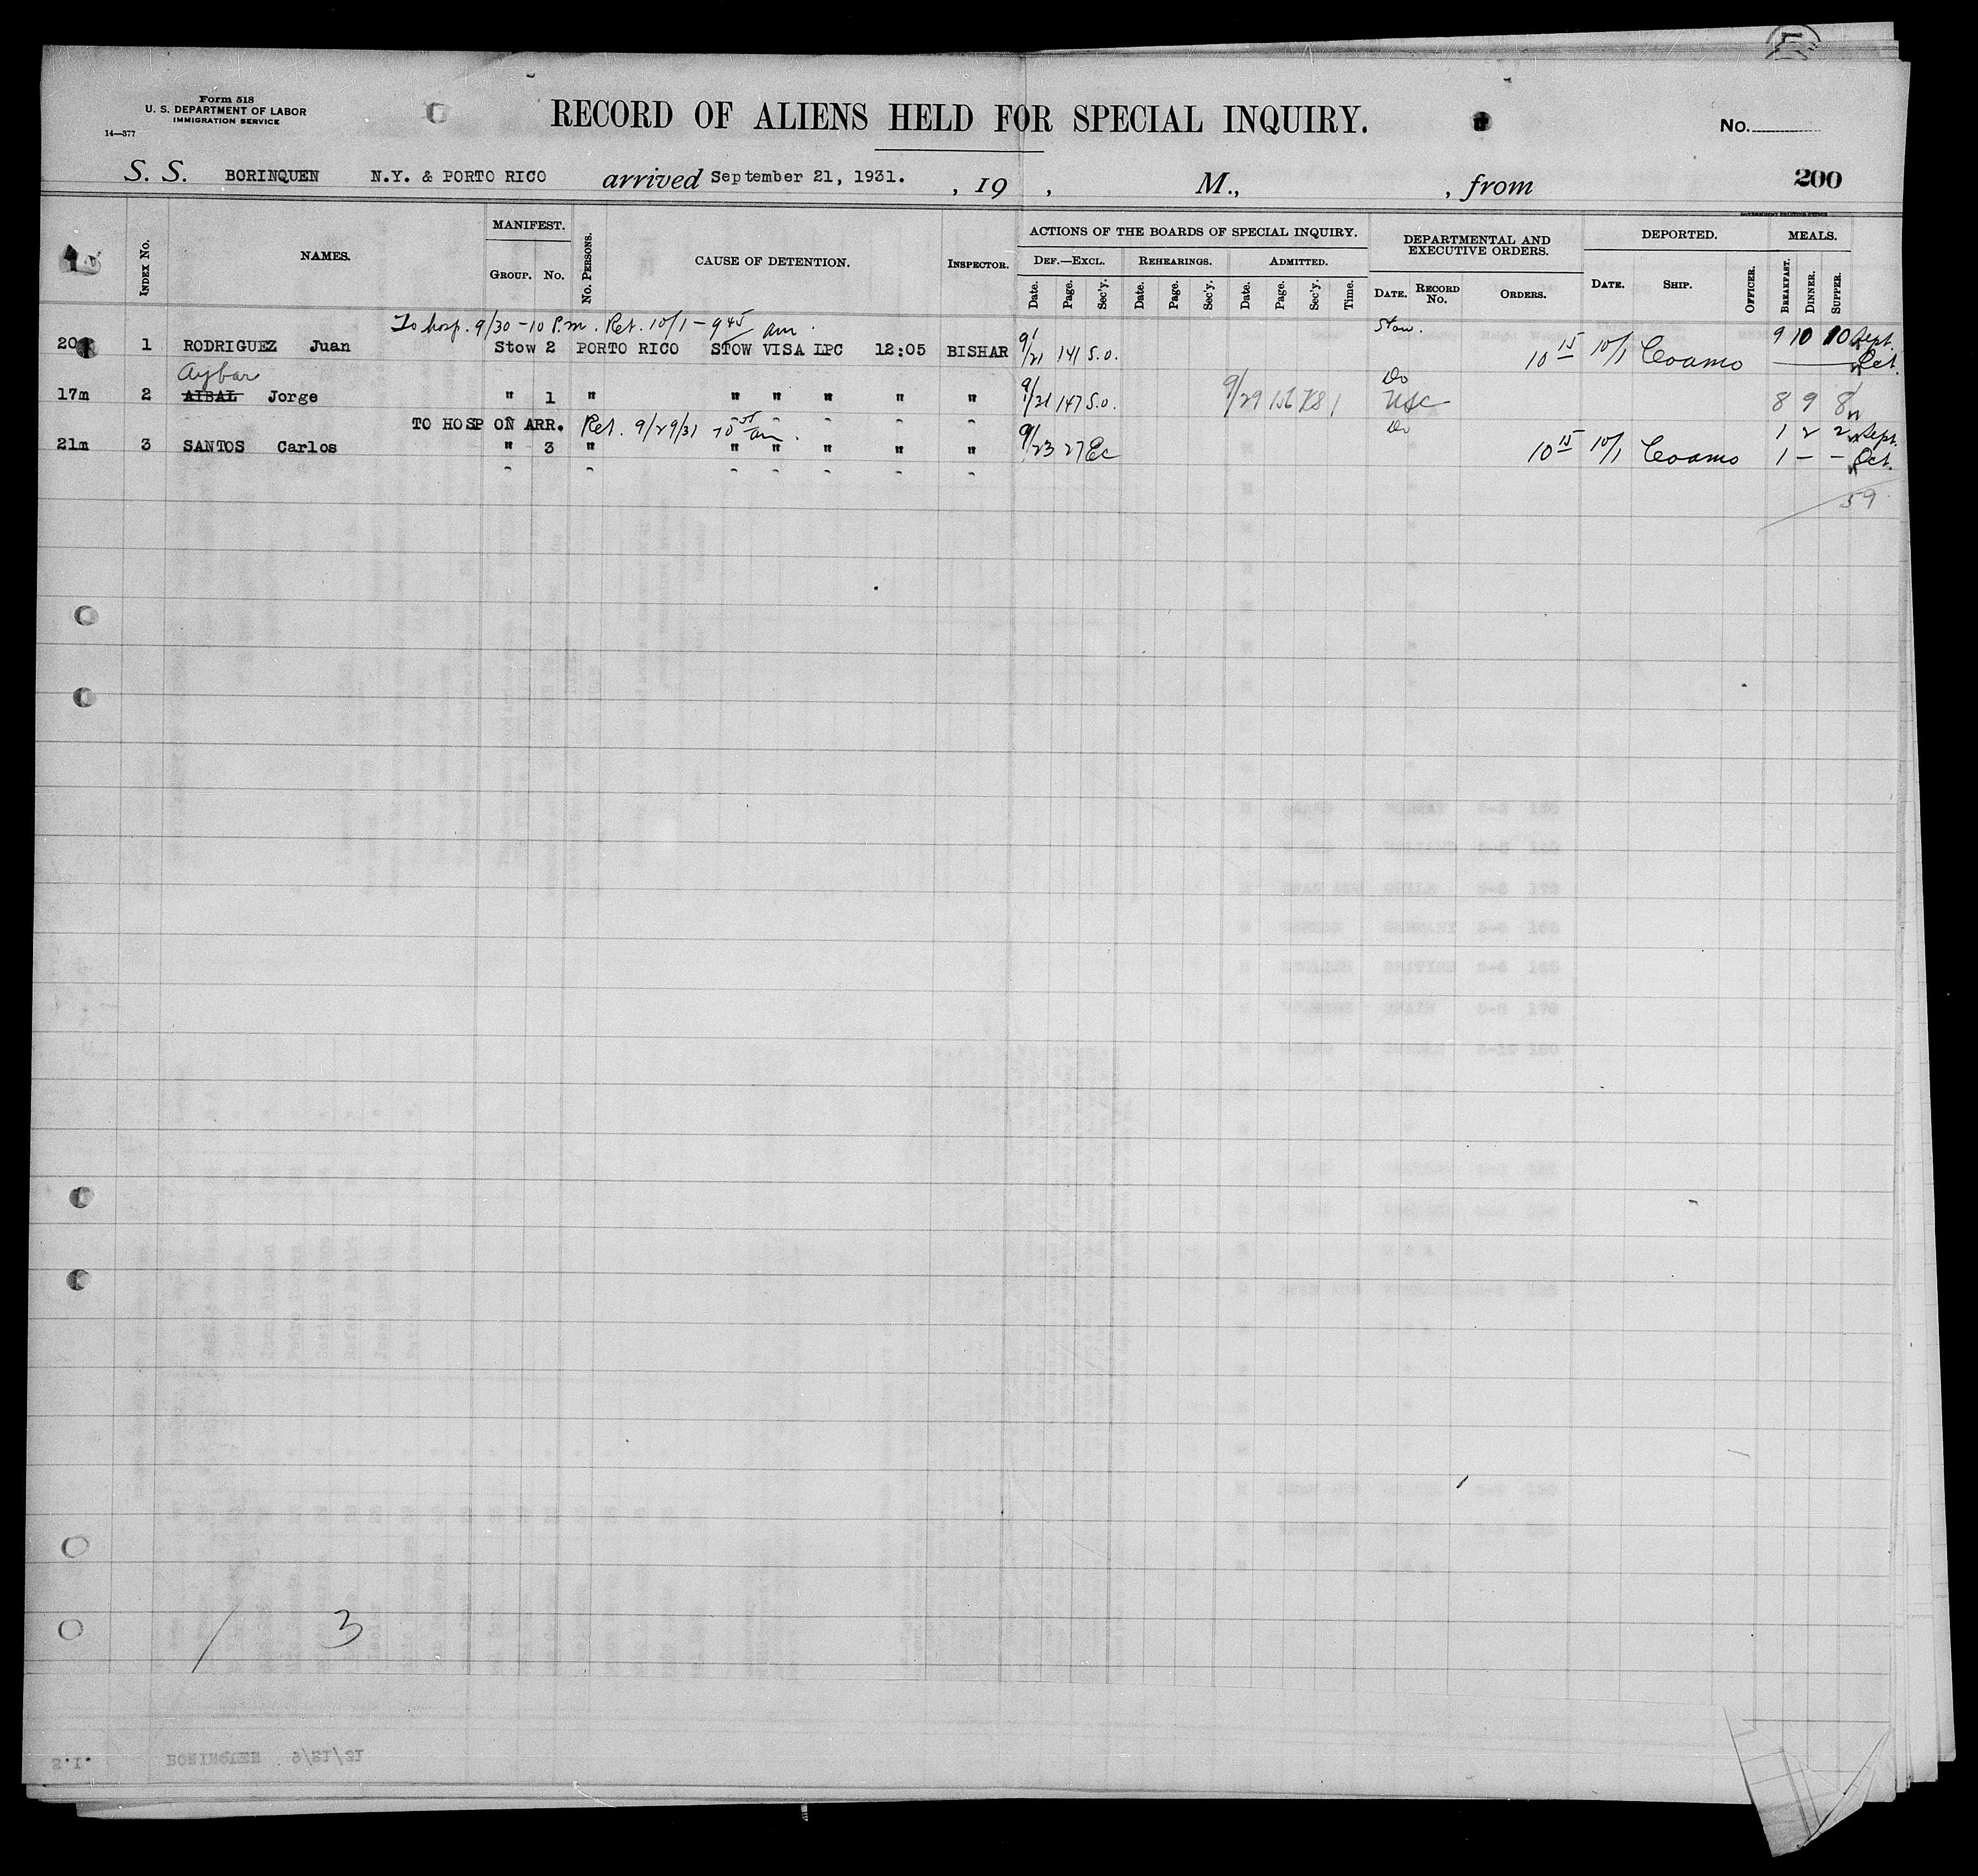 Form 518
U. S. DEPARTMENT OF LABOR
IMMIGRATION SERVICE
14—377
RECORD OF ALIENS HELD FOR SPECIAL INQUIRY.
No.
S. S. BORINQUEN N.Y. & PORTO RICO arrived September 21, 1931. , 19 , M., , from 200
Index No. NAMES. MANIFEST. Group. No. No. Persons. CAUSE OF DETENTION. Inspector. ACTIONS OF THE BOARDS OF SPECIAL INQUIRY. Def.—Excl. Date. Page. Sec'y. Rehearings. Date. Page. Sec'y. Admitted. Date. Page. Sec'y. Time. DEPARTMENTAL AND EXECUTIVE ORDERS. Date. Record No. Orders. DEPORTED. Date. Ship. Officer. MEALS. Breakfast. Dinner. Supper.
To hosp. 9/30 - 10 P.m. Ret. 10/1 - 9 45 am. Stow.
20 1 RODRIGUEZ Juan Stow 2 PORTO RICO STOW VISA LPC 12:05 BISHAR 9/21 141 S.O. 10 15 10/1 Coamo 9 10 10 Sept.
Oct.
Aybar Do
17m 2 AIBAL Jorge " 1 " " " " " " 9/21 147 S.O. 9/29 156 KS 1 USC 8 9 8
TO HOSP ON ARR. Ret. 9/29/31 am. Do
21m 3 SANTOS Carlos " 3 " " " " " " 9/23 27 Ec 10 15 10/1 Coamo 1 2 2 Sept.
1 - - Oct.
59
3
S.I. BORINQUEN 9/21/31